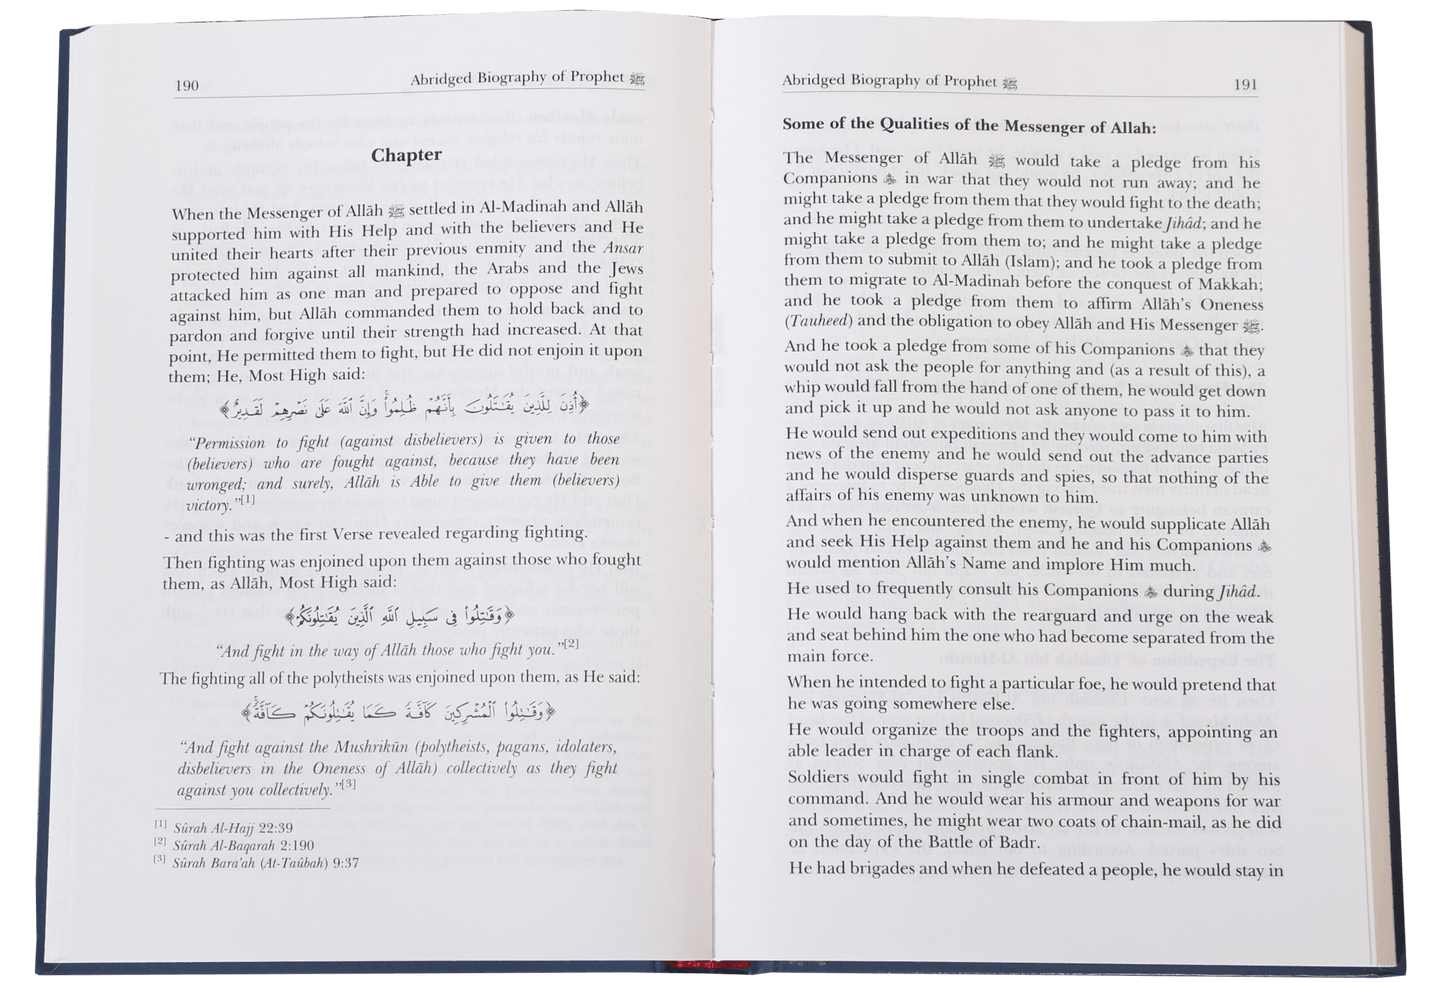 190 Abridged Biography of Prophet ﷺ
Chapter
When the Messenger of Allāh ﷺ settled in Al-Madinah and Allāh
supported him with His Help and with the believers and He
united their hearts after their previous enmity and the Ansar
protected him against all mankind, the Arabs and the Jews
attacked him as one man and prepared to oppose and fight
against him, but Allāh commanded them to hold back and to
pardon and forgive until their strength had increased. At that
point, He permitted them to fight, but He did not enjoin it upon
them; He, Most High said:
﴿أُذِنَ لِلَّذِينَ يُقَـٰتَلُونَ بِأَنَّهُمْ ظُلِمُوا۟ وَإِنَّ ٱللَّهَ عَلَىٰ نَصْرِهِمْ لَقَدِيرٌ﴾
“Permission to fight (against disbelievers) is given to those
(believers) who are fought against, because they have been
wronged; and surely, Allāh is Able to give them (believers)
victory.”[1]
- and this was the first Verse revealed regarding fighting.
Then fighting was enjoined upon them against those who fought
them, as Allāh, Most High said:
﴿وَقَـٰتِلُوا۟ فِى سَبِيلِ ٱللَّهِ ٱلَّذِينَ يُقَـٰتِلُونَكُمْ﴾
“And fight in the way of Allāh those who fight you.”[2]
The fighting all of the polytheists was enjoined upon them, as He said:
﴿وَقَـٰتِلُوا۟ ٱلْمُشْرِكِينَ كَآفَّةً كَمَا يُقَـٰتِلُونَكُمْ كَآفَّةً﴾
“And fight against the Mushrikūn (polytheists, pagans, idolaters,
disbelievers in the Oneness of Allāh) collectively as they fight
against you collectively.”[3]
[1] Sûrah Al-Hajj 22:39
[2] Sûrah Al-Baqarah 2:190
[3] Sûrah Bara’ah (At-Taûbah) 9:37
Abridged Biography of Prophet ﷺ 191
Some of the Qualities of the Messenger of Allah:
The Messenger of Allāh ﷺ would take a pledge from his
Companions in war that they would not run away; and he
might take a pledge from them that they would fight to the death;
and he might take a pledge from them to undertake Jihâd; and he
might take a pledge from them to; and he might take a pledge
from them to submit to Allāh (Islam); and he took a pledge from
them to migrate to Al-Madinah before the conquest of Makkah;
and he took a pledge from them to affirm Allāh’s Oneness
(Tauheed) and the obligation to obey Allāh and His Messenger ﷺ.
And he took a pledge from some of his Companions that they
would not ask the people for anything and (as a result of this), a
whip would fall from the hand of one of them, he would get down
and pick it up and he would not ask anyone to pass it to him.
He would send out expeditions and they would come to him with
news of the enemy and he would send out the advance parties
and he would disperse guards and spies, so that nothing of the
affairs of his enemy was unknown to him.
And when he encountered the enemy, he would supplicate Allāh
and seek His Help against them and he and his Companions
would mention Allāh’s Name and implore Him much.
He used to frequently consult his Companions during Jihâd.
He would hang back with the rearguard and urge on the weak
and seat behind him the one who had become separated from the
main force.
When he intended to fight a particular foe, he would pretend that
he was going somewhere else.
He would organize the troops and the fighters, appointing an
able leader in charge of each flank.
Soldiers would fight in single combat in front of him by his
command. And he would wear his armour and weapons for war
and sometimes, he might wear two coats of chain-mail, as he did
on the day of the Battle of Badr.
He had brigades and when he defeated a people, he would stay in